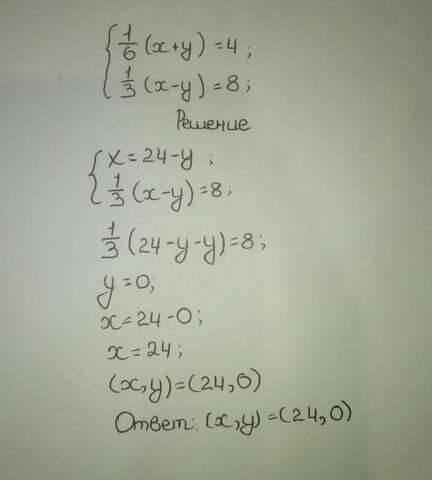 { 1/6 (x+y) = 4 ;
1/3 (x-y) = 8 ;
Решение
{ x = 24-y ;
1/3 (x-y) = 8 ;
1/3 (24-y-y) = 8 ;
y = 0;
x = 24-0 ;
x = 24 ;
(x,y) = (24,0)
Ответ: (x,y) = (24,0)